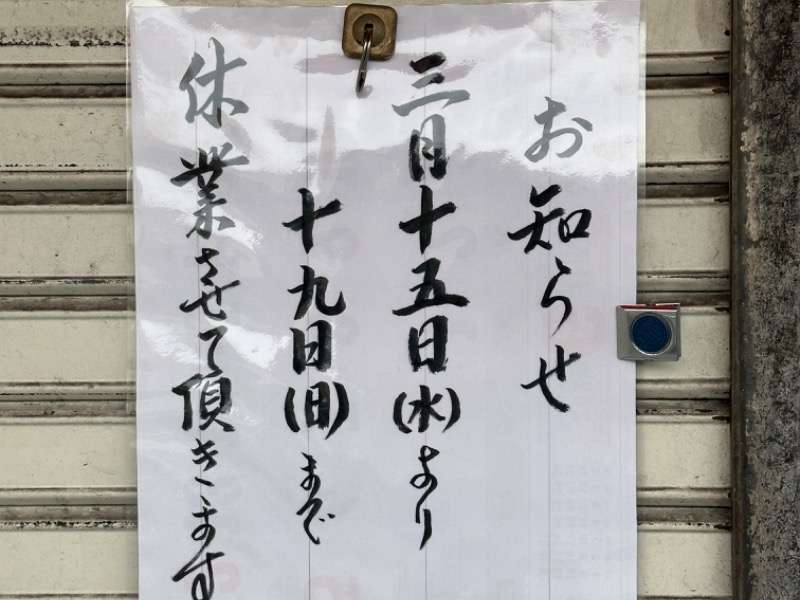 お知らせ
三月十五日(水)より
十九日(日)まで
休業させて頂きます